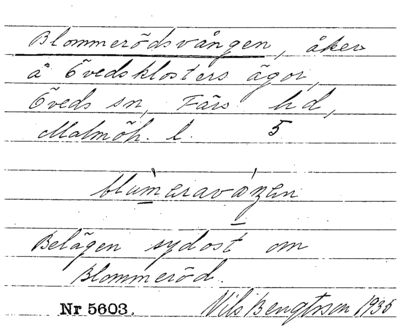 Blommerödsvången, åker
å Övedsklosters ägor,
Öveds sn, Färs hd,
Malmöh. l. 5
blùmeravàŋen
Belägen sydost om
Blommeröd.
Nr 5603. Nils Bengtsson 1935